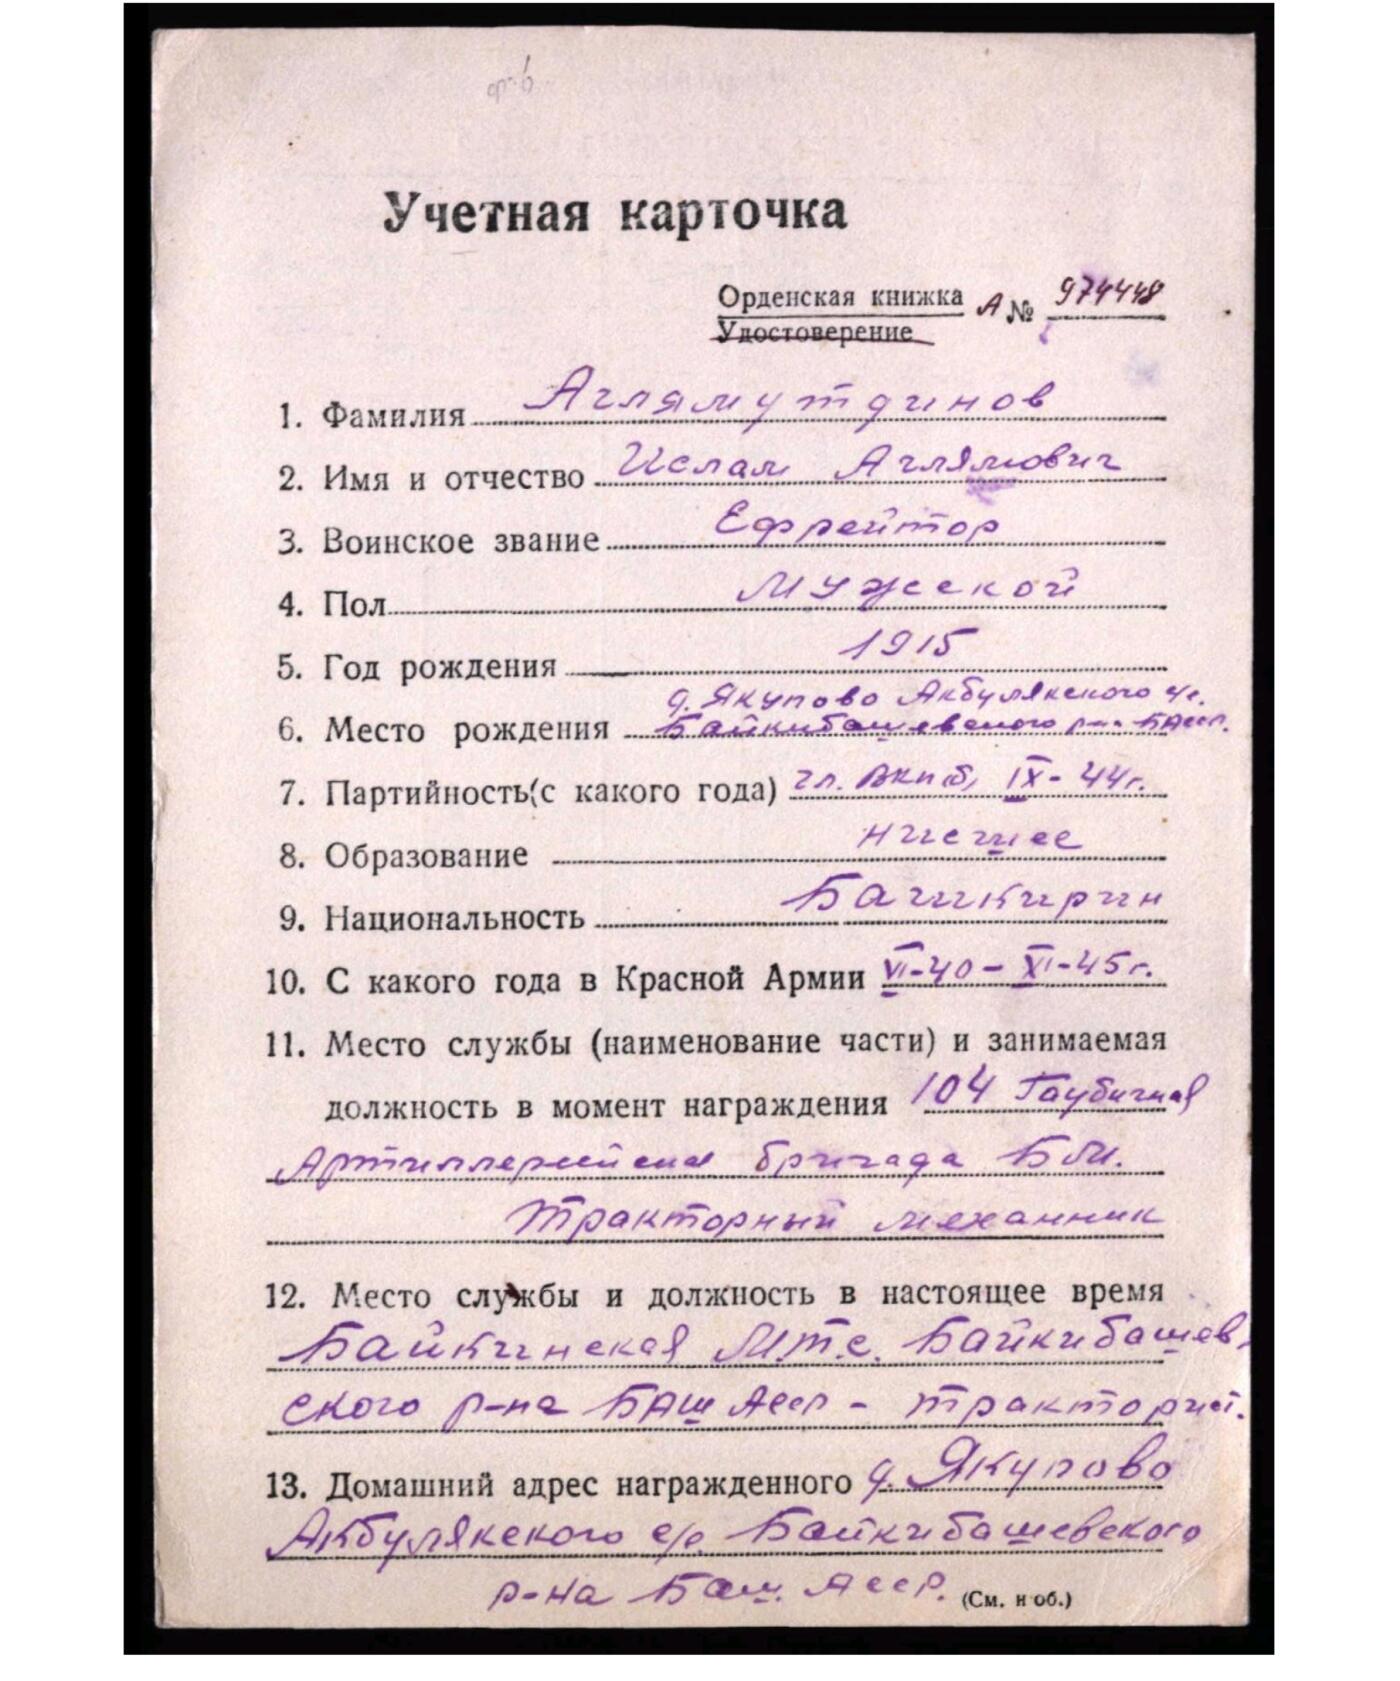 Учетная карточка
Орденская книжка А № 974448
Удостоверение
1. Фамилия Аглямутдинов
2. Имя и отчество Ислам Аглямович
3. Воинское звание Ефрейтор
4. Пол Мужской
5. Год рождения 1915
д. Якупово Акбулякского
6. Место рождения Байкибашевского р-на БАССР.
7. Партийность (с какого года) чл. ВКП(б) IX-44г.
8. Образование низшее
9. Национальность Башкирин
10. С какого года в Красной Армии VI-40 – XI-45г.
11. Место службы (наименование части) и занимаемая
должность в момент награждения 104 Гаубичная
Артиллерийская бригада БМ.
Тракторный механник
12. Место службы и должность в настоящее время
Байкинская М.Т.С. Байкибашев-
ского р-на БАШ АССР – тракторист.
13. Домашний адрес награжденного д. Якупово
Акбулякского с/с. Байкибашевского
р-на Баш. АССР. (См. н об.)